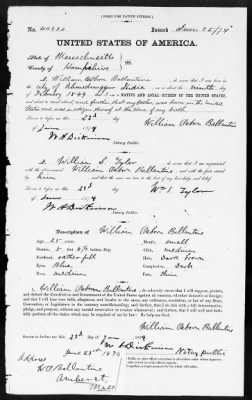 [FORM FOR NATIVE CITIZEN.]
No. 40880 Issued June 25/74
UNITED STATES OF AMERICA.
State of Massachusetts
County of Hampshire SS.
I, William Osborn Ballantine, do swear that I was born in
the city of Ahmednuggur India, on or about the ninth day of
February, 1849; that I am a NATIVE AND LOYAL CITIZEN OF THE UNITED STATES,
and about to travel abroad, and further, that my father was born in the United
States and was a citizen thereof at the time of
Sworn to before me this 23d day
of June 1874 William Osborn Ballantine
W H Dickinson
Notary Public.
I, William S. Tyler, do swear that I am acquainted
with the above-named William Osborn Ballantine, and with the facts stated
by him and that the same are true to the best of my knowledge and belief.
Sworn to before me this 23d day
of June 1874 Wm. S. Tyler
W H Dickinson
Notary Public.
Description of William Osborn Ballantine
Age, 25 years Mouth, small
Stature, 5 ft. 8 3/4 inches, Eng. Chin, medium
Forehead, rather full Hair, dark brown
Eyes, Blue Complexion, Dark
Nose, medium Face, thin
I, William Osborn Ballantine, do solemnly swear that I will support, protect,
and defend the Constitution and Government of the United States against all enemies, whether domestic or foreign;
and that I will bear true faith, allegiance, and loyalty to the same, any ordinance, resolution, or law of any State,
Convention, or Legislature to the contrary notwithstanding; and further, that I do this with a full determination,
pledge, and purpose, without any mental reservation or evasion whatsoever; and further, that I will well and faith-
fully perform all the duties which may be required of me by law: So help me God.
William Osborn Ballantine
Sworn to before me this 23d day of June 1874
W H Dickinson
June 23d 1874 Notary public
Address
W O Ballantine
Amherst
Mass